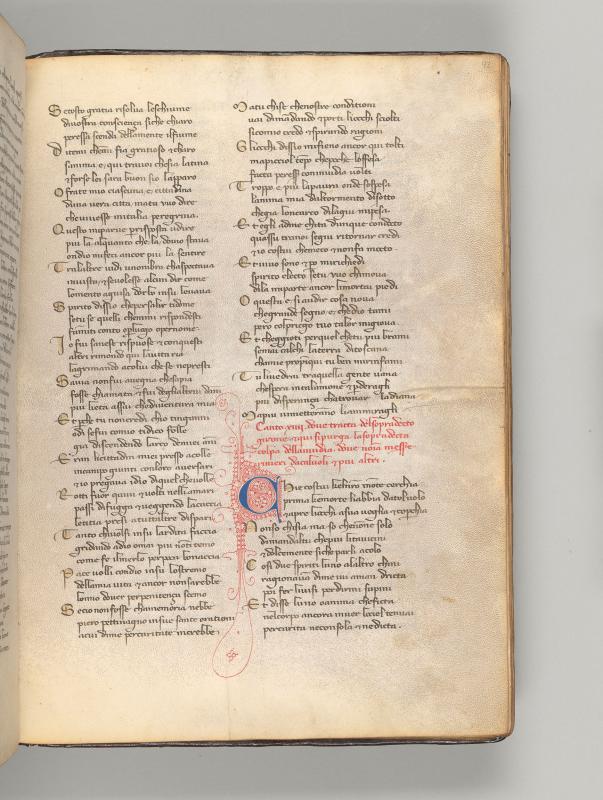 Setosto gratia risolua leschiume
diuostra conscienza siche chiaro
peressa scenda dellamente ilfiume
Ditemi chemi fia gratioso & charo
sanima e qui trauoi chesia latina
& forse lei sara buon sio lapparo
Ofrate mio ciascuna e cittadina
duna uera citta matu uuo dire
cheuiuesse initalia peregrina.
Questo miparue perrisposta udire
piu la alquanto che la douio staua
ondio mifeci ancor piu la sentire
Tralaltre uidi unombra chaspectaua
inuista & seuolesse alcun dir come
lomento aguisa dorbo insu leuaua
Spirito dissio chepersalir tidome
setu se quelli chemmi rispondesti
fammiti conto operluogo opernome
Io fui sanese rispuose & conquesti
altri rimondo qui lauita ria
lagrimando acolui che se nepresti
Sauia nonfui auegna chasapia
fosse chiamata & fui deglialtrui danni
piu lieta assai chediuentura mia
Et perche tu noncredi chio tinganni
odi sefui comio tidico folle
gia discendendo larco demiei anni
Eran licittadin miei presso acolle
incampo giunti conloro auersari
& io pregaua idio diquel cheuolle
Rotti fuor quiui & uolti nelliamari
passi difugga & ueggendo lacaccia
letitia presi atuttaltre dispari
Tanto chiuolsi insu lardita faccia
gridando adio omai piu non temo
come fe ilmerlo perpoca bonaccia
Pace uolli condio insu lostremo
dellamia uita & ancor nonsarebbe
lomio douer perpenitença scemo
Secio nonfosse chamemoria nebbe
piero pettinagno insue sante orationi
acui dime percaritate increbbe
Matu chise chenostre conditioni
uai dimandando & porti liocchi sciolti
sicomio credo & spirando ragioni
Gliocchi dissio mifieno ancor qui tolti
mapicciol tempo chepoche loffesa
facta peresser coninuidia uolti
Troppo e piu lapaura onde sospesa
lanima mia deltormento disotto
chegia loncarco dilagiu mipesa.
Et egli adme chita dunque condocto
quassu tranoi segiu ritornar credi
& io costui chemeco & nonfa motto
Et uiuo sono & po mirichiedi
spirito electo setu uuo chimoua
dila imparte ancor limortai piedi
Oquesta e siaudir cosa noua
chegrande segno e chedio tami
pero colprego tuo talor migioua
Et cheggioti perquelchetu piu brami
semai calchi laterra ditoscana
chamie propiqui tu ben mirinfami
Tu liuedrai traquella gente uana
chespera intalamone & perderagli
piu disperança chatrouar ladiana
Mapiu uimetteranno liammiragli
Canto xiiij doue tracta delsopradecto
girone & qui sipurga lasopradecta
colpa dellainuidia. doue noïa messer
rinieri dacaluoli & piu altri.
Chie costui kelnro monte cerchia
prima kemorte liabbia datoluolo
& apre liocchi asua uoglia & coperchia
Nonso chisia ma so chenone solo
dimandaltu chepiu litauicini
& dolcemente siche parli acolo
Cosi due spiriti luno alaltro chini
ragionauan dime iui aman dricta
poi fer liuisi perdirmi supini
Et disse luno oanima cheficta
nelcorpo ancora inuer lociel tenuai
percarita neconsola & nedicta.